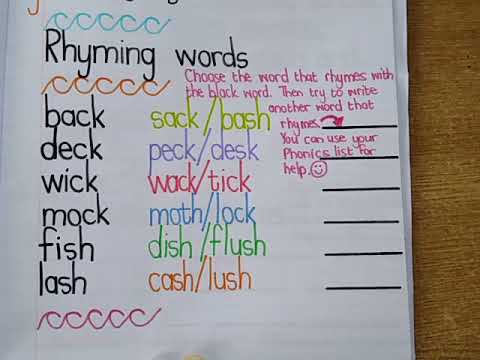 Rhyming words
Choose the word that rhymes with
the black word. Then try to write
another word that
rhymes.
You can use your
Phonics list for
help.
back sack/bash
deck peck/desk
wick wack/tick
mock moth/lock
fish dish/flush
lash cash/lush